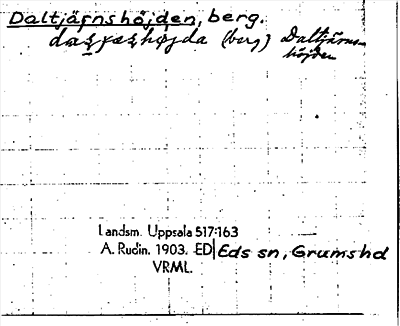 Daltjärnshöjden, berg.
(berg) Daltjärns-
höjden
Landsm. Uppsala 517:163
A. Rudin. 1903. ED Eds sn, Grumshd
VRML.